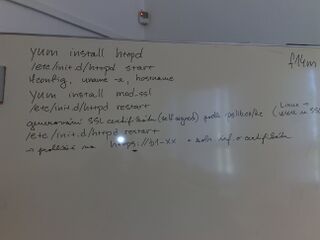 yum install httpd
/etc/init.d/httpd start
ifconfig, uname -r, hostname
f14m
yum install mod_ssl
/etc/init.d/httpd restart
generování SSL certifikátu (self signed) podle
(Linux →
/etc/init.d/httpd restart
→ prohlížeč na https://b1-xx + zobr. inf. o certifikátu